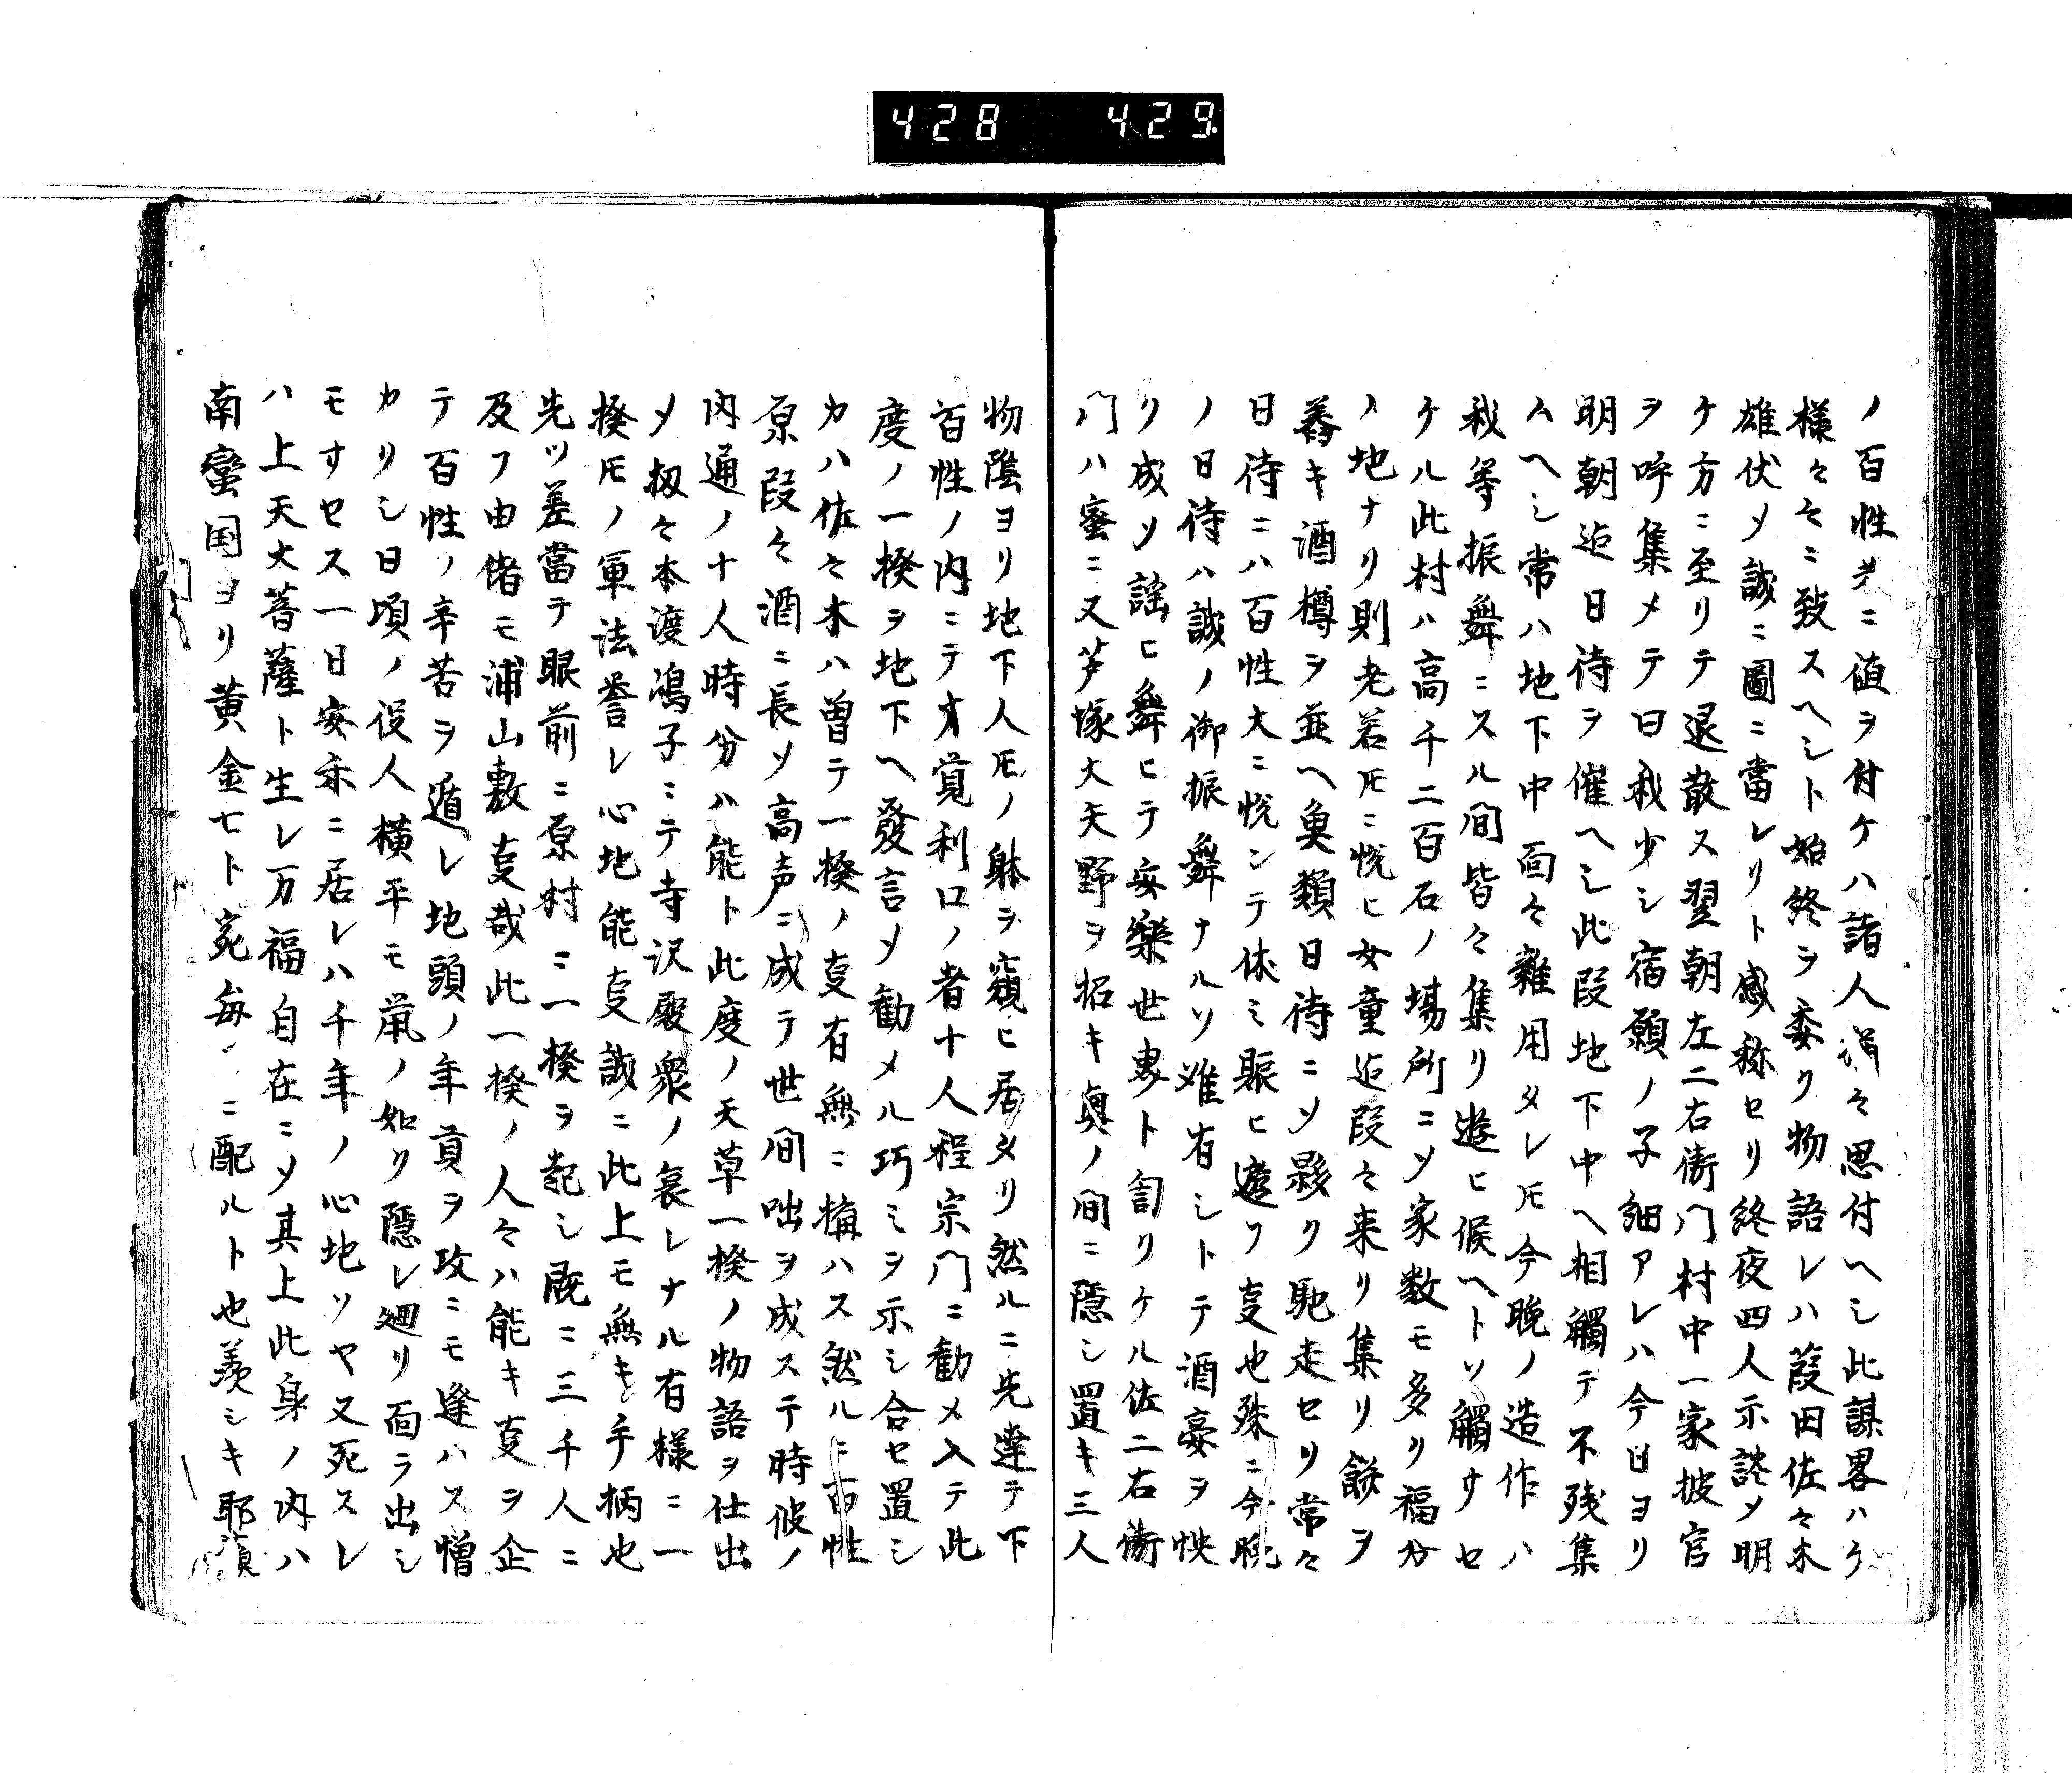 428 429
ノ百性共ニ値ヲ付ケハ諸人漸々思付ヘシ此謀畧ハケ
様々々ニ致スヘシト始終ヲ委ク物語レハ葭田佐々木
雄伏メ誠ニ圖ニ當レリト感称セリ終夜四人示談メ明
ケ方ニ至リテ退散ス翌朝左二右衛門村中一家披官
ヲ呼集メテ曰我少シ宿願ノ子細アレハ今日ヨリ
明朝迠日待ヲ催ヘシ此段地下中ヘ相觸テ不残集
ムヘシ常ハ地下中面々雜用タレ𪜈今晩ノ造作ハ
我等振舞ニスル间皆々集リ遊ヒ候ヘトソ觸サセ
ケル此村ハ高千二百石ノ場所ニソ家数モ多リ福分
ノ地ナリ則老若𪜈ニ悦ヒ女童迠段々来リ集リ餅ヲ
舂キ酒樽ヲ並ヘ魚類日待ニソ夥ク馳走セリ常々
日待ニハ百性大ニ悦ンテ休ミ賑ヒ遊フ事也殊ニ今晩
ノ日待ハ誠ノ御振舞ナルソ難有シトテ酒宴ヲ怏
リ成ソ謡ヒ舞ヒテ安樂世界ト訇リケル佐二右衛
门ハ蜜ニ又芦塚大矢野ヲ招キ奥ノ间ニ隠シ置キ三人
物陰ヨリ地下人𪜈ノ躰ヲ窺ヒ居タリ然ルニ先達テ下
百性ノ内ニテ才覚利口ノ者十人程宗门ニ勧メ入テ此
度ノ一揆ヲ地下ヘ發言メ勧メル巧ミヲ示シ合セ置シ
カハ佐々木ハ曽テ一揆ノ事有無ニ構ハス然ルニ百性
原段々酒ニ長ソ高声ニ成テ世间咄ヲ成ステ時彼ノ
内通ノ十人時分ハ能ト此度ノ天草一揆ノ物語ヲ仕出
メ扨々本渡鴻子ニテ寺沢殿衆ノ哀レナル有様ニ一
揆𪜈ノ軍法誉レ心地能事誠ニ此上モ無キ手柄也
先ツ差當テ眼前ニ原村ニ一揆ヲ起シ既ニ三千人ニ
及フ由偖モ浦山敷事哉此一揆ノ人々ハ能キ事ヲ企
テ百性ノ辛苦ヲ遁レ地頭ノ年貢ヲ攻ニモ逢ハス憎
カリシ日頃ノ役人横平モ鼠ノ如ク隠レ廻リ面ラ出シ
モすセス一日安楽ニ居レハ千年ノ心地ソヤ又死スレ
ハ上天大菩薩ト生レ万福自在ニソ其上此身ノ内ハ
南蛮国ヨリ黄金七ト宛毎〻ニ配ルト也羨シキ耶蘓